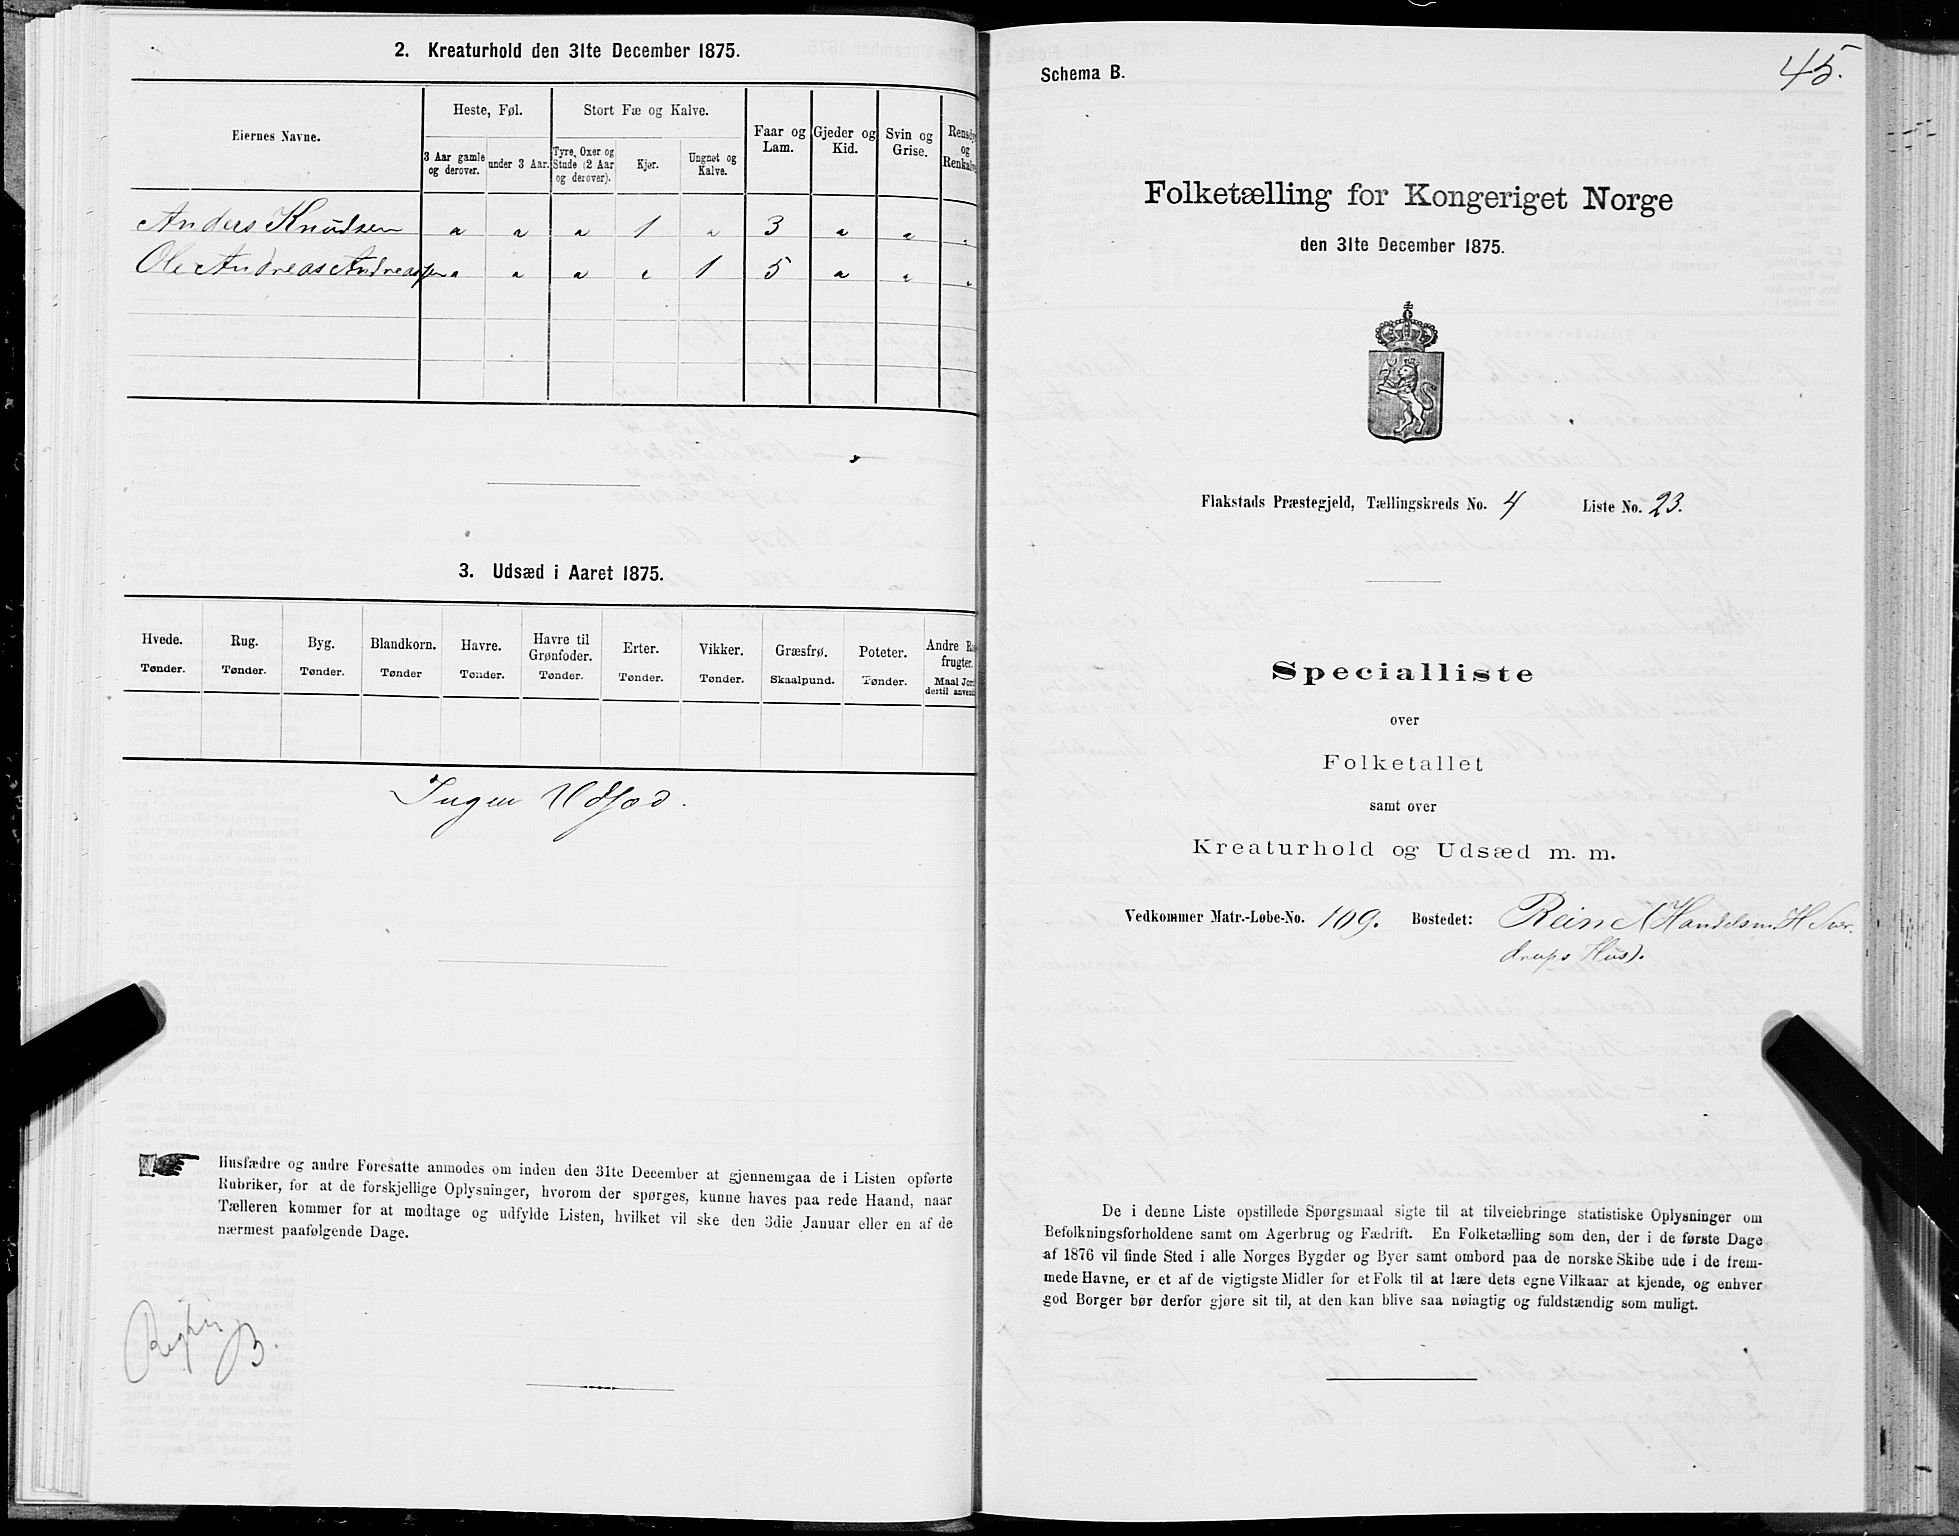 2. Kreaturhold den 31te December 1875.
Eiernes Navne.
Heste, Føl.
Stort Fæ og Kalve.
Faar og Lam.
Gjeder og Kid.
Svin og Grise.
og
3 Aar gamle og derover.
under 3 Aar.
Tyre, Oxer og Stude (2 Aar og derover).
Kjør.
Ungnøt og Kalve.
Anders Knudsen " " " 1 " 3 " " "
Ole Andreas Andreassen " " " " 1 5 " " "
3. Udsæd i Aaret 1875.
Hvede. Rug. Byg. Blandkorn. Havre. Havre til Grønfoder. Erter. Vikker. Græsfrø. Poteter. Andre
frugter.
Tønder. Tønder. Tønder. Tønder Tønder. Tønder. Tønder. Tønder. Skaalpund. Tønder. Maal
dertil
Ingen Udsæd.
Husfædre og andre Foresatte anmodes om inden den 31te December at gjennemgaa de i Listen opførte
Rubriker, for at de forskjellige Oplysninger, hvorom der spørges, kunne haves paa rede Haand, naar
Tælleren kommer for at modtage og udfylde Listen, hvilket vil ske den 3die Januar eller en af de
nærmest paafølgende Dage.
B.
45.
Schema B.
Folketælling for Kongeriget Norge
den 31te December 1875.
Flakstads Præstegjeld, Tællingskreds No. 4 Liste No. 23.
Specialliste
over
Folketallet
samt over
Kreaturhold og Udsæd m. m.
Vedkommer Matr.-Løbe-No. 109. Bostedet: Reine (Handelsm. H Sver-
drups Hus).
De i denne Liste opstillede Spørgsmaal sigte til at tilveiebringe statistiske Oplysninger om
Befolkningsforholdene samt om Agerbrug og Fædrift. En Folketælling som den, der i de første Dage
af 1876 vil finde Sted i alle Norges Bygder og Byer samt ombord paa de norske Skibe ude i de frem-
mede Havne, er et af de vigtigste Midler for et Folk til at lære dets egne Vilkaar at kjende, og enhver
god Borger bør derfor gjøre sit til, at den kan blive saa nøiagtig og fuldstændig som muligt.